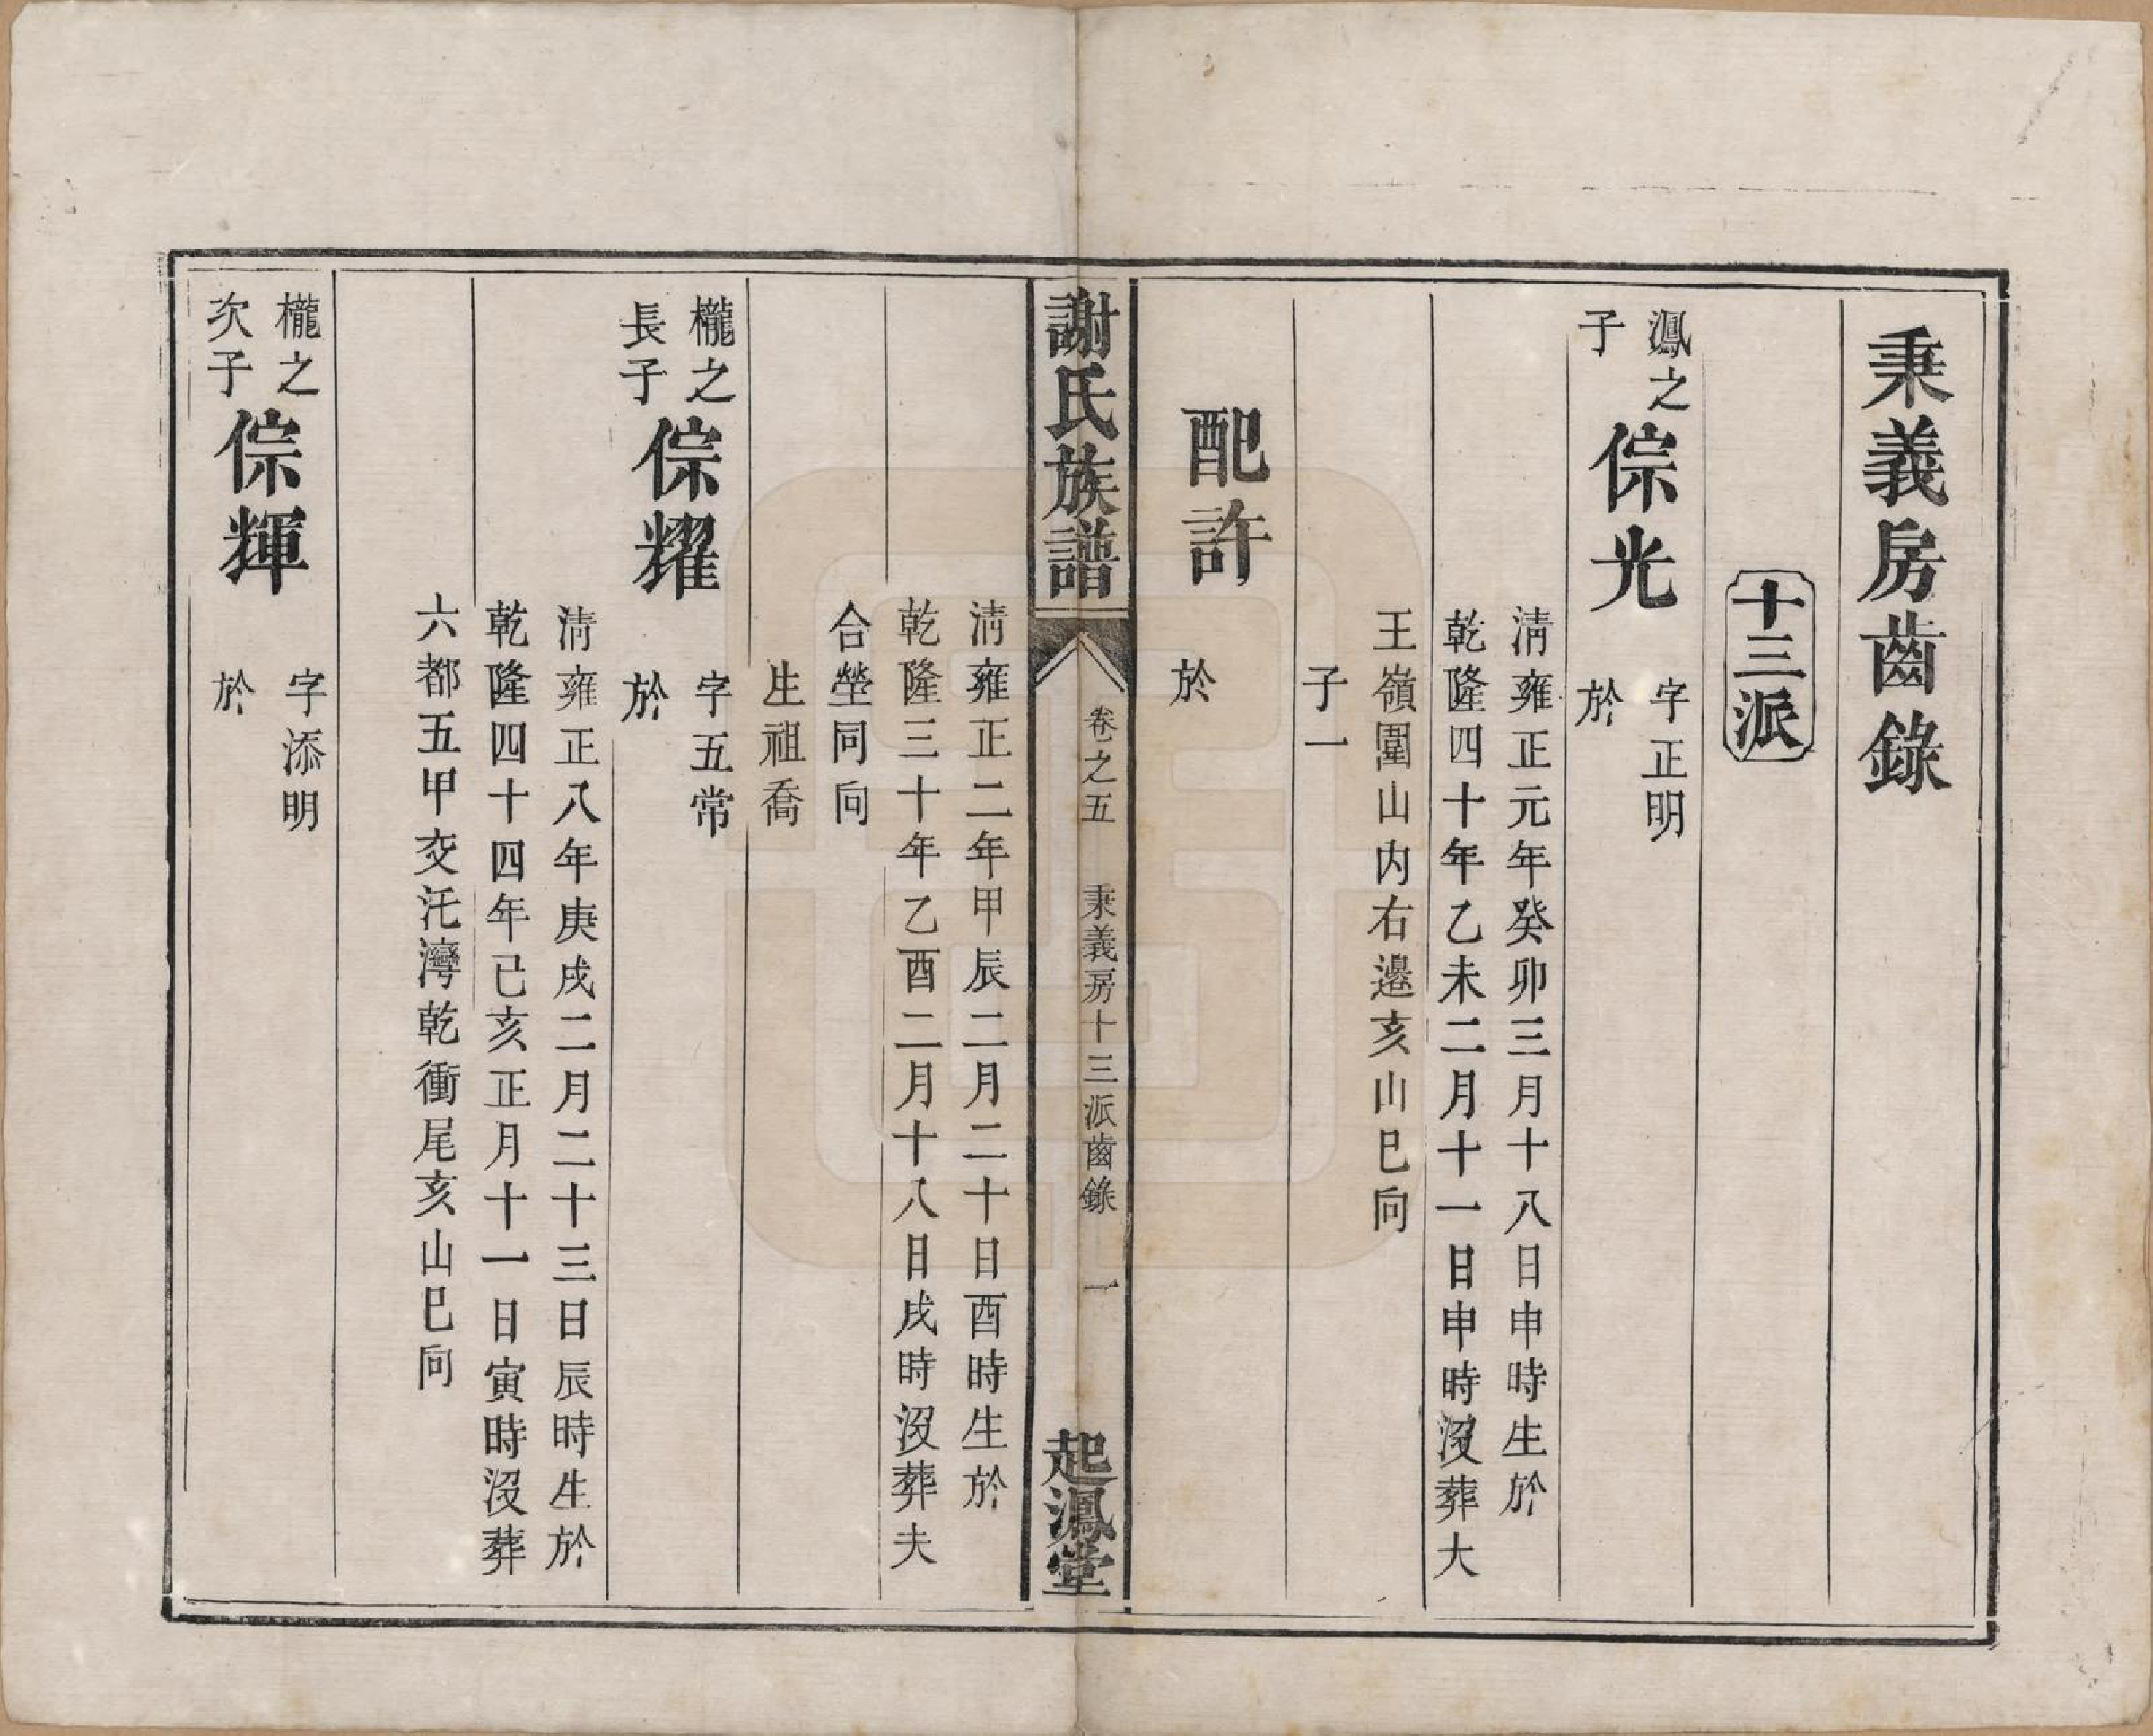 秉義房齒錄
十三派
鳳之子 倧光 字正明
於
清雍正元年癸卯三月十八日申時生於
乾隆四十年乙未二月十一日申時沒葬大
王嶺圍山内右邊亥山巳向
子一
配許
於
謝氏族譜 卷之五 秉義房十三派齒錄 一 起鳳堂
清雍正二年甲辰二月二十日酉時生於
乾隆三十年乙酉二月十八日戌時沒葬夫
合塋同向
生祖喬
櫳之長子 倧耀 字五常
於
清雍正八年庚戌二月二十三日辰時生於
乾隆四十四年己亥正月十一日寅時沒葬
六都五甲交汑灣乾衝尾亥山巳向
櫳之次子 倧輝 字添明
於